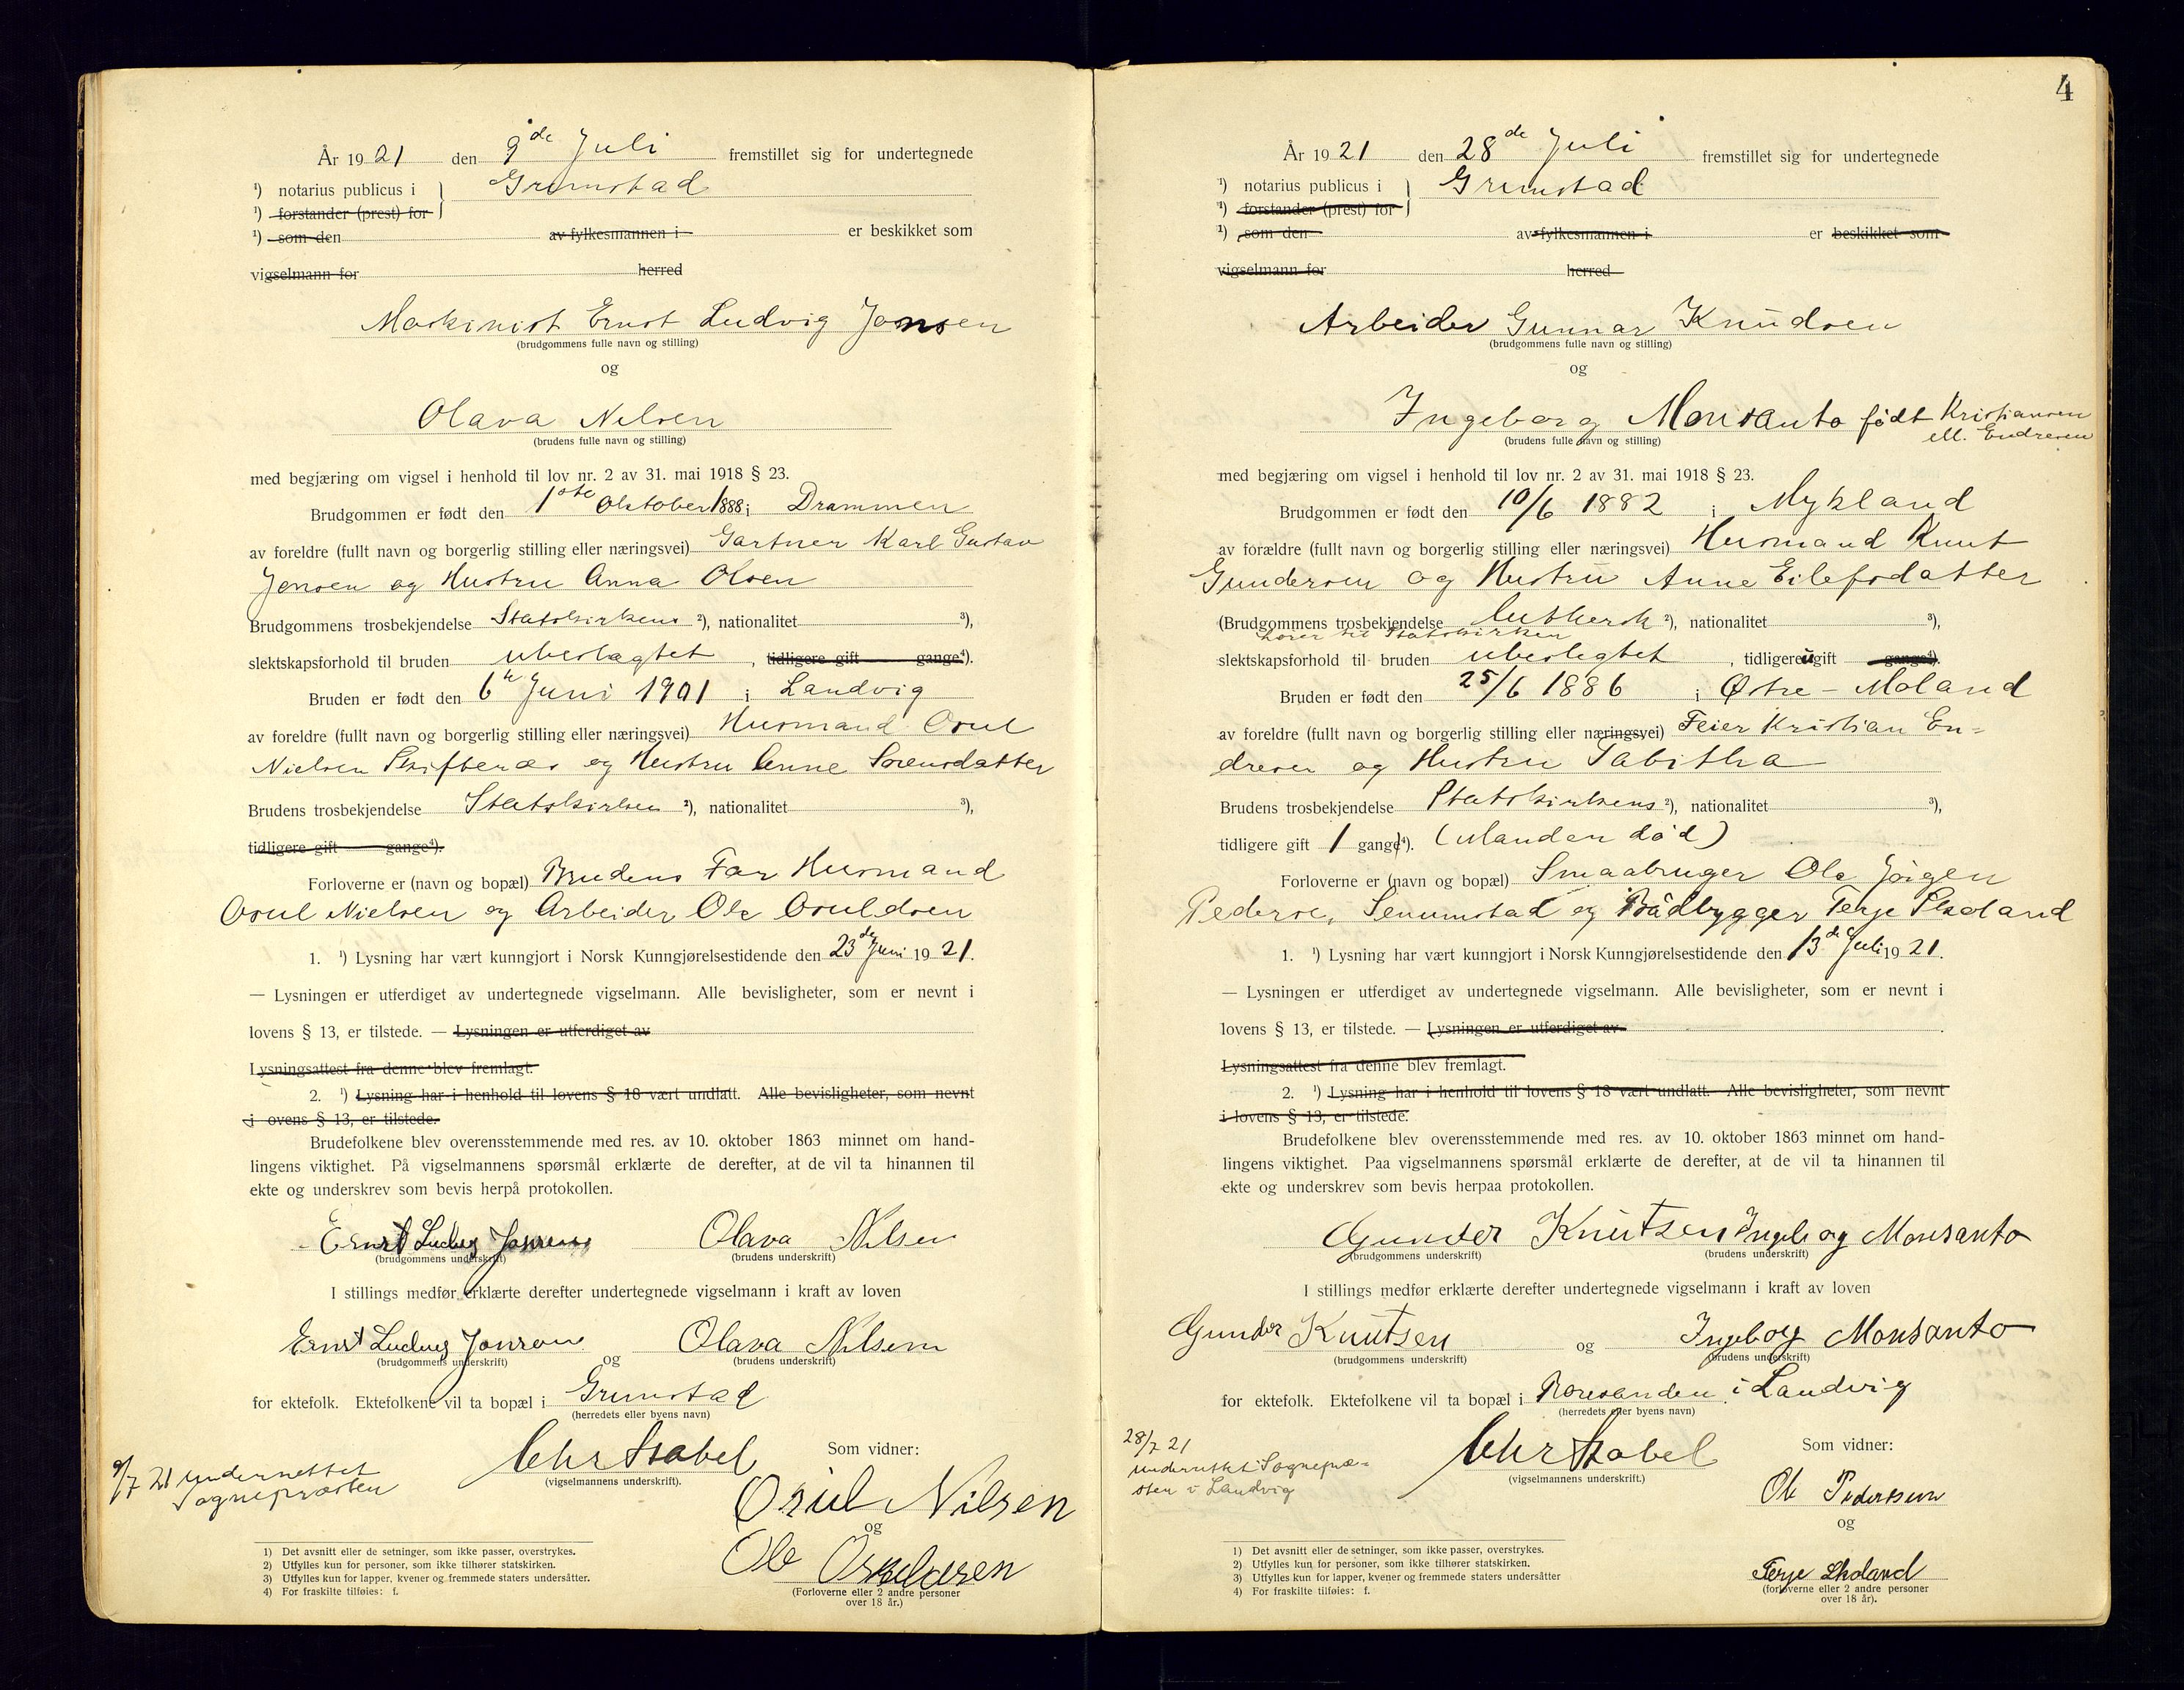 År 1921 den 9de Juli fremstillet sig for undertegnede
¹) notarius publicus i Grimstad
¹) forstander (prest) for
¹) som den av fylkesmannen i er beskikket som
vigselmann for herred
Maskinist Ernst Ludvig Jonsen
(brudgommens fulle navn og stilling)
og
Olava Nilsen
(brudens fulle navn og stilling)
med begjæring om vigsel i henhold til lov nr. 2 av 31. mai 1918 § 23.
Brudgommen er født den 1ste Oktober 1888 i Drammen
av foreldre (fullt navn og borgerlig stilling eller næringsvei) Gartner Karl Gustav
Jensen og Hustru Anna Olsen
Brudgommens trosbekjendelse Statskirkens ²), nationalitet ³),
slektskapsforhold til bruden ubeslagtet, tidligere gift gange⁴).
Bruden er født den 6te Juni 1901 i Landvig
av foreldre (fullt navn og borgerlig stilling eller næringsvei) Husmand Osul
Nielsen Skiftenæs og Hustru Anne Sorensdatter
Brudens trosbekjendelse Statskirken ²), nationalitet ³),
tidligere gift gange⁴).
Forloverne er (navn og bopæl) Brudens Far Husmand
Osul Nielsen og Arbeider Ole Osuldsen
1. ¹) Lysning har vært kunngjort i Norsk Kunngjørelsestidende den 23de Juni 1921.
— Lysningen er utferdiget av undertegnede vigselmann. Alle bevisligheter, som er nevnt i
lovens § 13, er tilstede. — Lysningen er utferdiget av
Lysningsattest fra denne blev fremlagt.
2. ¹) Lysning har i henhold til lovens § 18 vært undlatt. Alle bevisligheter, som nevnt
i ovens § 13, er tilstede.
Brudefolkene blev overensstemmende med res. av 10. oktober 1863 minnet om hand-
lingens viktighet. På vigselmannens spørsmål erklærte de derefter, at de vil ta hinannen til
ekte og underskrev som bevis herpå protokollen.
Ernst Ludvig Jonsen Olava Nilsen
(brudgommens underskrift) (brudens underskrift)
I stillings medfør erklærte derefter undertegnede vigselmann i kraft av loven
Ernst Ludvig Jonson og Olava Nilsen
(brudgommens underskrift) (brudens underskrift)
for ektefolk. Ektefolkene vil ta bopæl i Grimstad
(herredets eller byens navn)
Chr Stabel Som vidner:
(vigselmannens underskrift).
9/7 21 underrettet
Sognepræsten
Osul Nilsen
og
Ole Osuldsen
(Forloverne eller 2 andre personer
over 18 år.)
1) Det avsnitt eller de setninger, som ikke passer, overstrykes.
2) Utfylles kun for personer, som ikke tilhører statskirken.
3) Utfylles kun for lapper, kvener og fremmede staters undersåtter.
4) For fraskilte tilføies: f.
4
År 1921 den 28de Juli fremstillet sig for undertegnede
¹) notarius publicus i Grimstad
¹) forstander (prest) for
¹) som den av fylkesmannen i er beskikket som
vigselmann for herred
Arbeider Gunnar Knudsen
(brudgommens fulle navn og stilling)
og
Ingeborg Monsanto født Kristiansen
ell. Endresen
(brudens fulle navn og stilling)
med begjæring om vigsel i henhold til lov nr. 2 av 31. mai 1918 § 23.
Brudgommen er født den 10/6 1882 i Mykland
av forældre (fullt navn og borgerlig stilling eller næringsvei) Husmand Knut
Gundersen og Hustru Anne Eilefsdatter
(Brudgommens trosbekjendelse luthersk ²), nationalitet ³),
til Statskirken
slektskapsforhold til bruden ubeslegtet, tidligere ugift gange⁴).
Bruden er født den 25/6 1886 i Østre-Moland
av foreldre (fullt navn og borgerlig stilling eller næringsvei) Feier Kristian En-
dresen og Hustru Tabitha
Brudens trosbekjendelse Statskirkens ²), nationalitet ³),
tidligere gift 1 gang⁴). (Manden død)
Forloverne er (navn og bopæl) Smaabruger Ole Jørgen
Pederse, Senumstad og Bådbygger Terje Skoland
1. ¹) Lysning har vært kunngjort i Norsk Kunngjørelsestidende den 13de Juli 1921.
— Lysningen er utferdiget av undertegnede vigselmann. Alle bevisligheter, som er nevnt i
lovens § 13, er tilstede. — Lysningen er utferdiget av
Lysningsattest fra denne blev fremlagt.
2. ¹) Lysning har i henhold til lovens § 18 vært undlatt. Alle bevisligheter, som nevnt
i lovens § 13, er tilstede.
Brudefolkene blev overensstemmende med res. av 10. oktober 1863 minnet om hand-
lingens viktighet. Paa vigselmannens spørsmål erklærte de derefter, at de vil ta hinannen til
ekte og underskrev som bevis herpaa protokollen.
Gunder Knutsen Ingeborg Monsanto
(brudgommens underskrift) (brudens underskrift)
I stillings medfør erklærte derefter undertegnede vigselmann i kraft av loven
Gunder Knutsen og Ingeborg Monsanto
(brudgommens underskrift) (brudens underskrift)
for ektefolk. Ektefolkene vil ta bopæl i Roresanden i Landvig
(herredets eller byens navn)
Chr Stabel Som vidner:
(vigselmannens underskrift.)
28/7 21
underrettet Sognepræ-
sten i Landvig
Ole Pedersen
og
Terje Skoland
(forloverne eller 2 andre personer
over 18 år).
1) Det avsnitt eller de setninger, som ikke passer, overstrykes.
2) Utfylles kun for personer, som ikke tilhører statskirken.
3) Utfylles kun for lapper, kvener og fremmede staters undersåtter
4) For fraskilte tilføies: f.